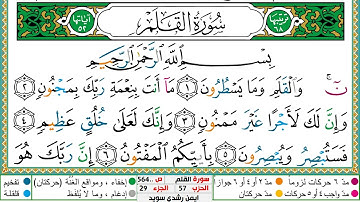 ترتيبها ٦٨ سُورَةُ القَلَمِ آياتها ٥٢
بِسْمِ ٱللَّهِ ٱلرَّحْمَٰنِ ٱلرَّحِيمِ
نٓ ۚ وَٱلْقَلَمِ وَمَا يَسْطُرُونَ ١ مَآ أَنتَ بِنِعْمَةِ رَبِّكَ بِمَجْنُونٍ ٢
وَإِنَّ لَكَ لَأَجْرًا غَيْرَ مَمْنُونٍ ٣ وَإِنَّكَ لَعَلَىٰ خُلُقٍ عَظِيمٍ ٤
فَسَتُبْصِرُ وَيُبْصِرُونَ ٥ بِأَييِّكُمُ ٱلْمَفْتُونُ ٦ إِنَّ رَبَّكَ هُوَ
مد ٦ حركات لزوما مد ٢ أو ٤ أو ٦ جوازا إخفاء، ومواقع الغنة (حركتان) تفخيم
مد واجب ٤ أو ٥ حركات مد حركتان إدغام، وما لا يلفظ قلقلة
سورة القلم ص 564
الحزب 57 الجزء 29
ايمن رشدي سويد